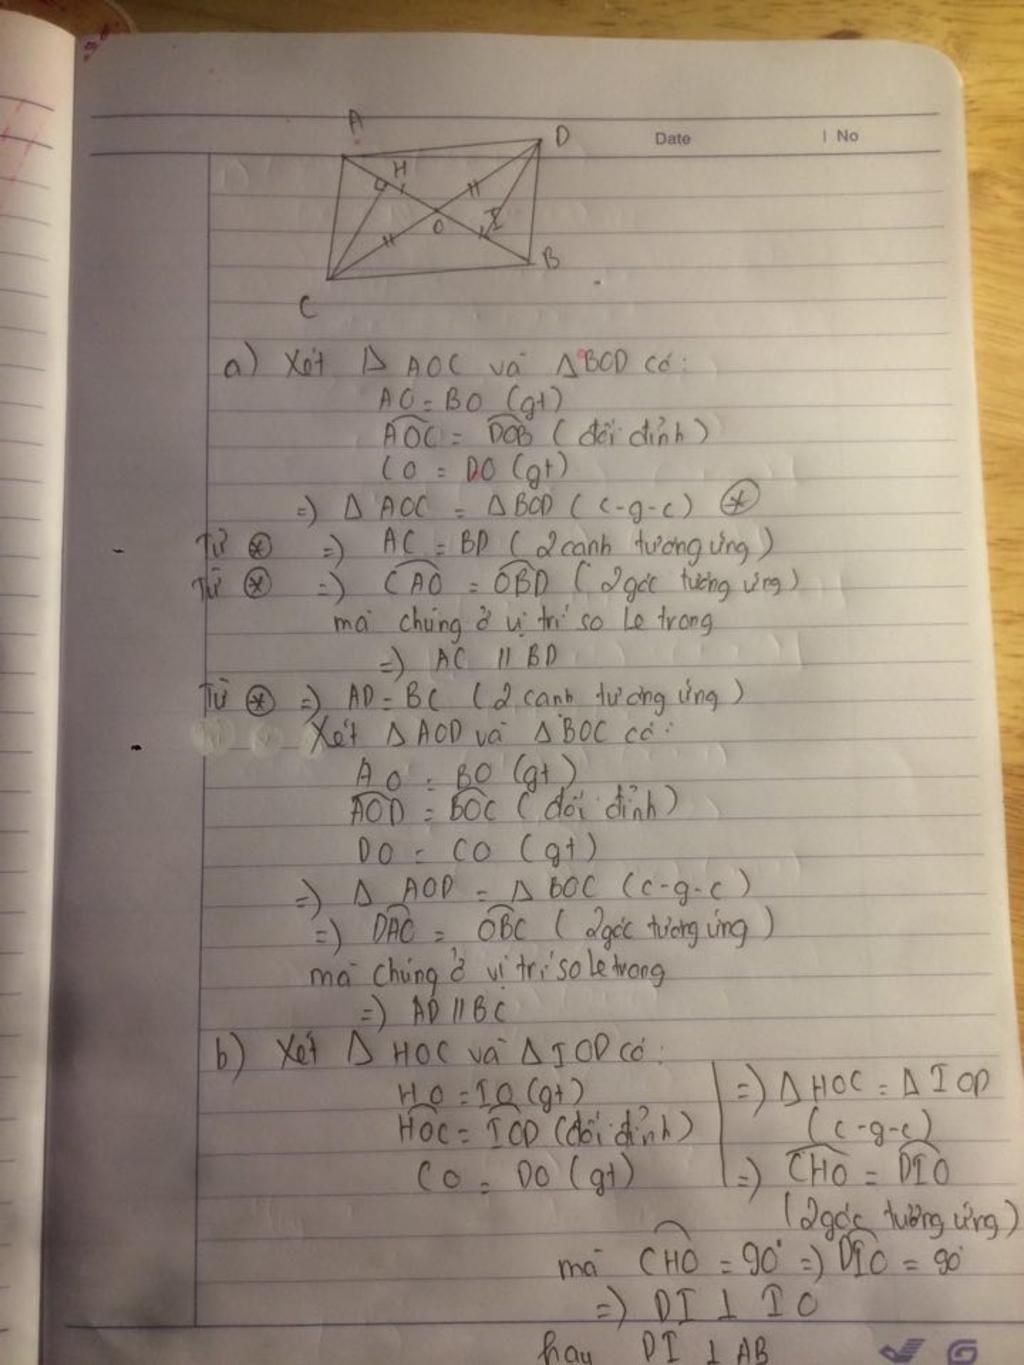 A
D
Date
No
H
I
O
B
C
a) Xét Δ AOC và Δ BOD có:
AO = BO (gt)
AOC = DOB (đối đỉnh)
CO = DO (gt)
=) Δ AOC = Δ BOD (c-g-c) (*)
Từ (*) =) AC = BD (2 cạnh tương ứng)
Từ (*) =) CAO = OBD (2 góc tương ứng)
mà chúng ở vị trí so le trong
=) AC // BD
Từ (*) =) AD = BC (2 cạnh tương ứng)
Xét Δ AOD và Δ BOC có:
AO = BO (gt)
AOD = BOC (đối đỉnh)
DO = CO (gt)
=) Δ AOD = Δ BOC (c-g-c)
=) DAO = OBC (2 góc tương ứng)
mà chúng ở vị trí so le trong
=) AD // BC
b) Xét Δ HOC và Δ IOD có:
HO = IO (gt)
HOC = IOD (đối đỉnh)
CO = DO (gt)
=) Δ HOC = Δ IOD
(c-g-c)
=) CHO = DIO
(2 góc tương ứng)
mà CHO = 90° =) DIO = 90°
=) DI ⊥ IO
hay DI ⊥ AB